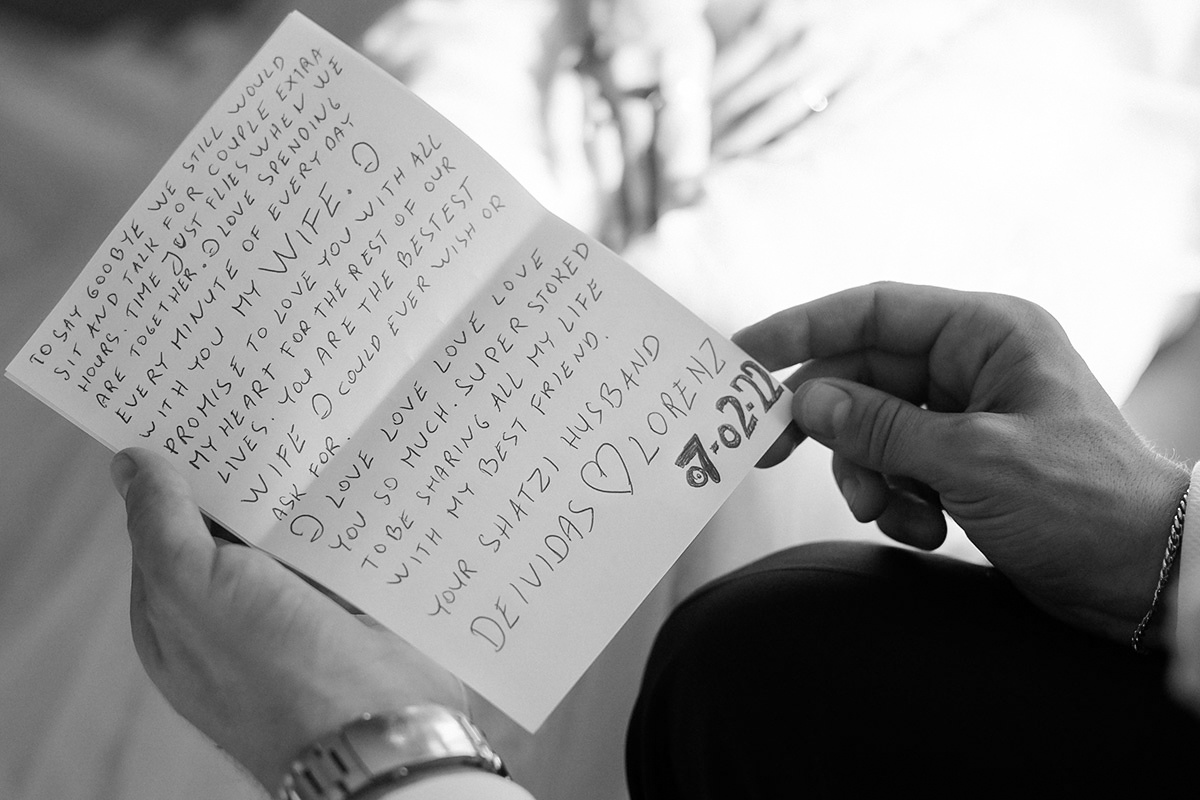 TO SAY GOODBYE WE STILL WOULD
SIT AND TALK FOR COUPLE EXTRA
HOURS. TIME JUST FLIES WHEN WE
ARE TOGETHER. I LOVE SPENDING
EVERY MINUTE OF EVERY DAY
WITH YOU MY WIFE. I
PROMISE TO LOVE YOU WITH ALL
MY HEART FOR THE REST OF OUR
LIVES. YOU ARE THE BESTEST
WIFE I COULD EVER WISH OR
ASK FOR.
I LOVE LOVE LOVE LOVE LOVE
YOU SO MUCH. SUPER STOKED
TO BE SHARING ALL MY LIFE
WITH MY BEST FRIEND.
YOUR SHATZI HUSBAND
DEIVIDAS ♡ LORENZ
07-02-22